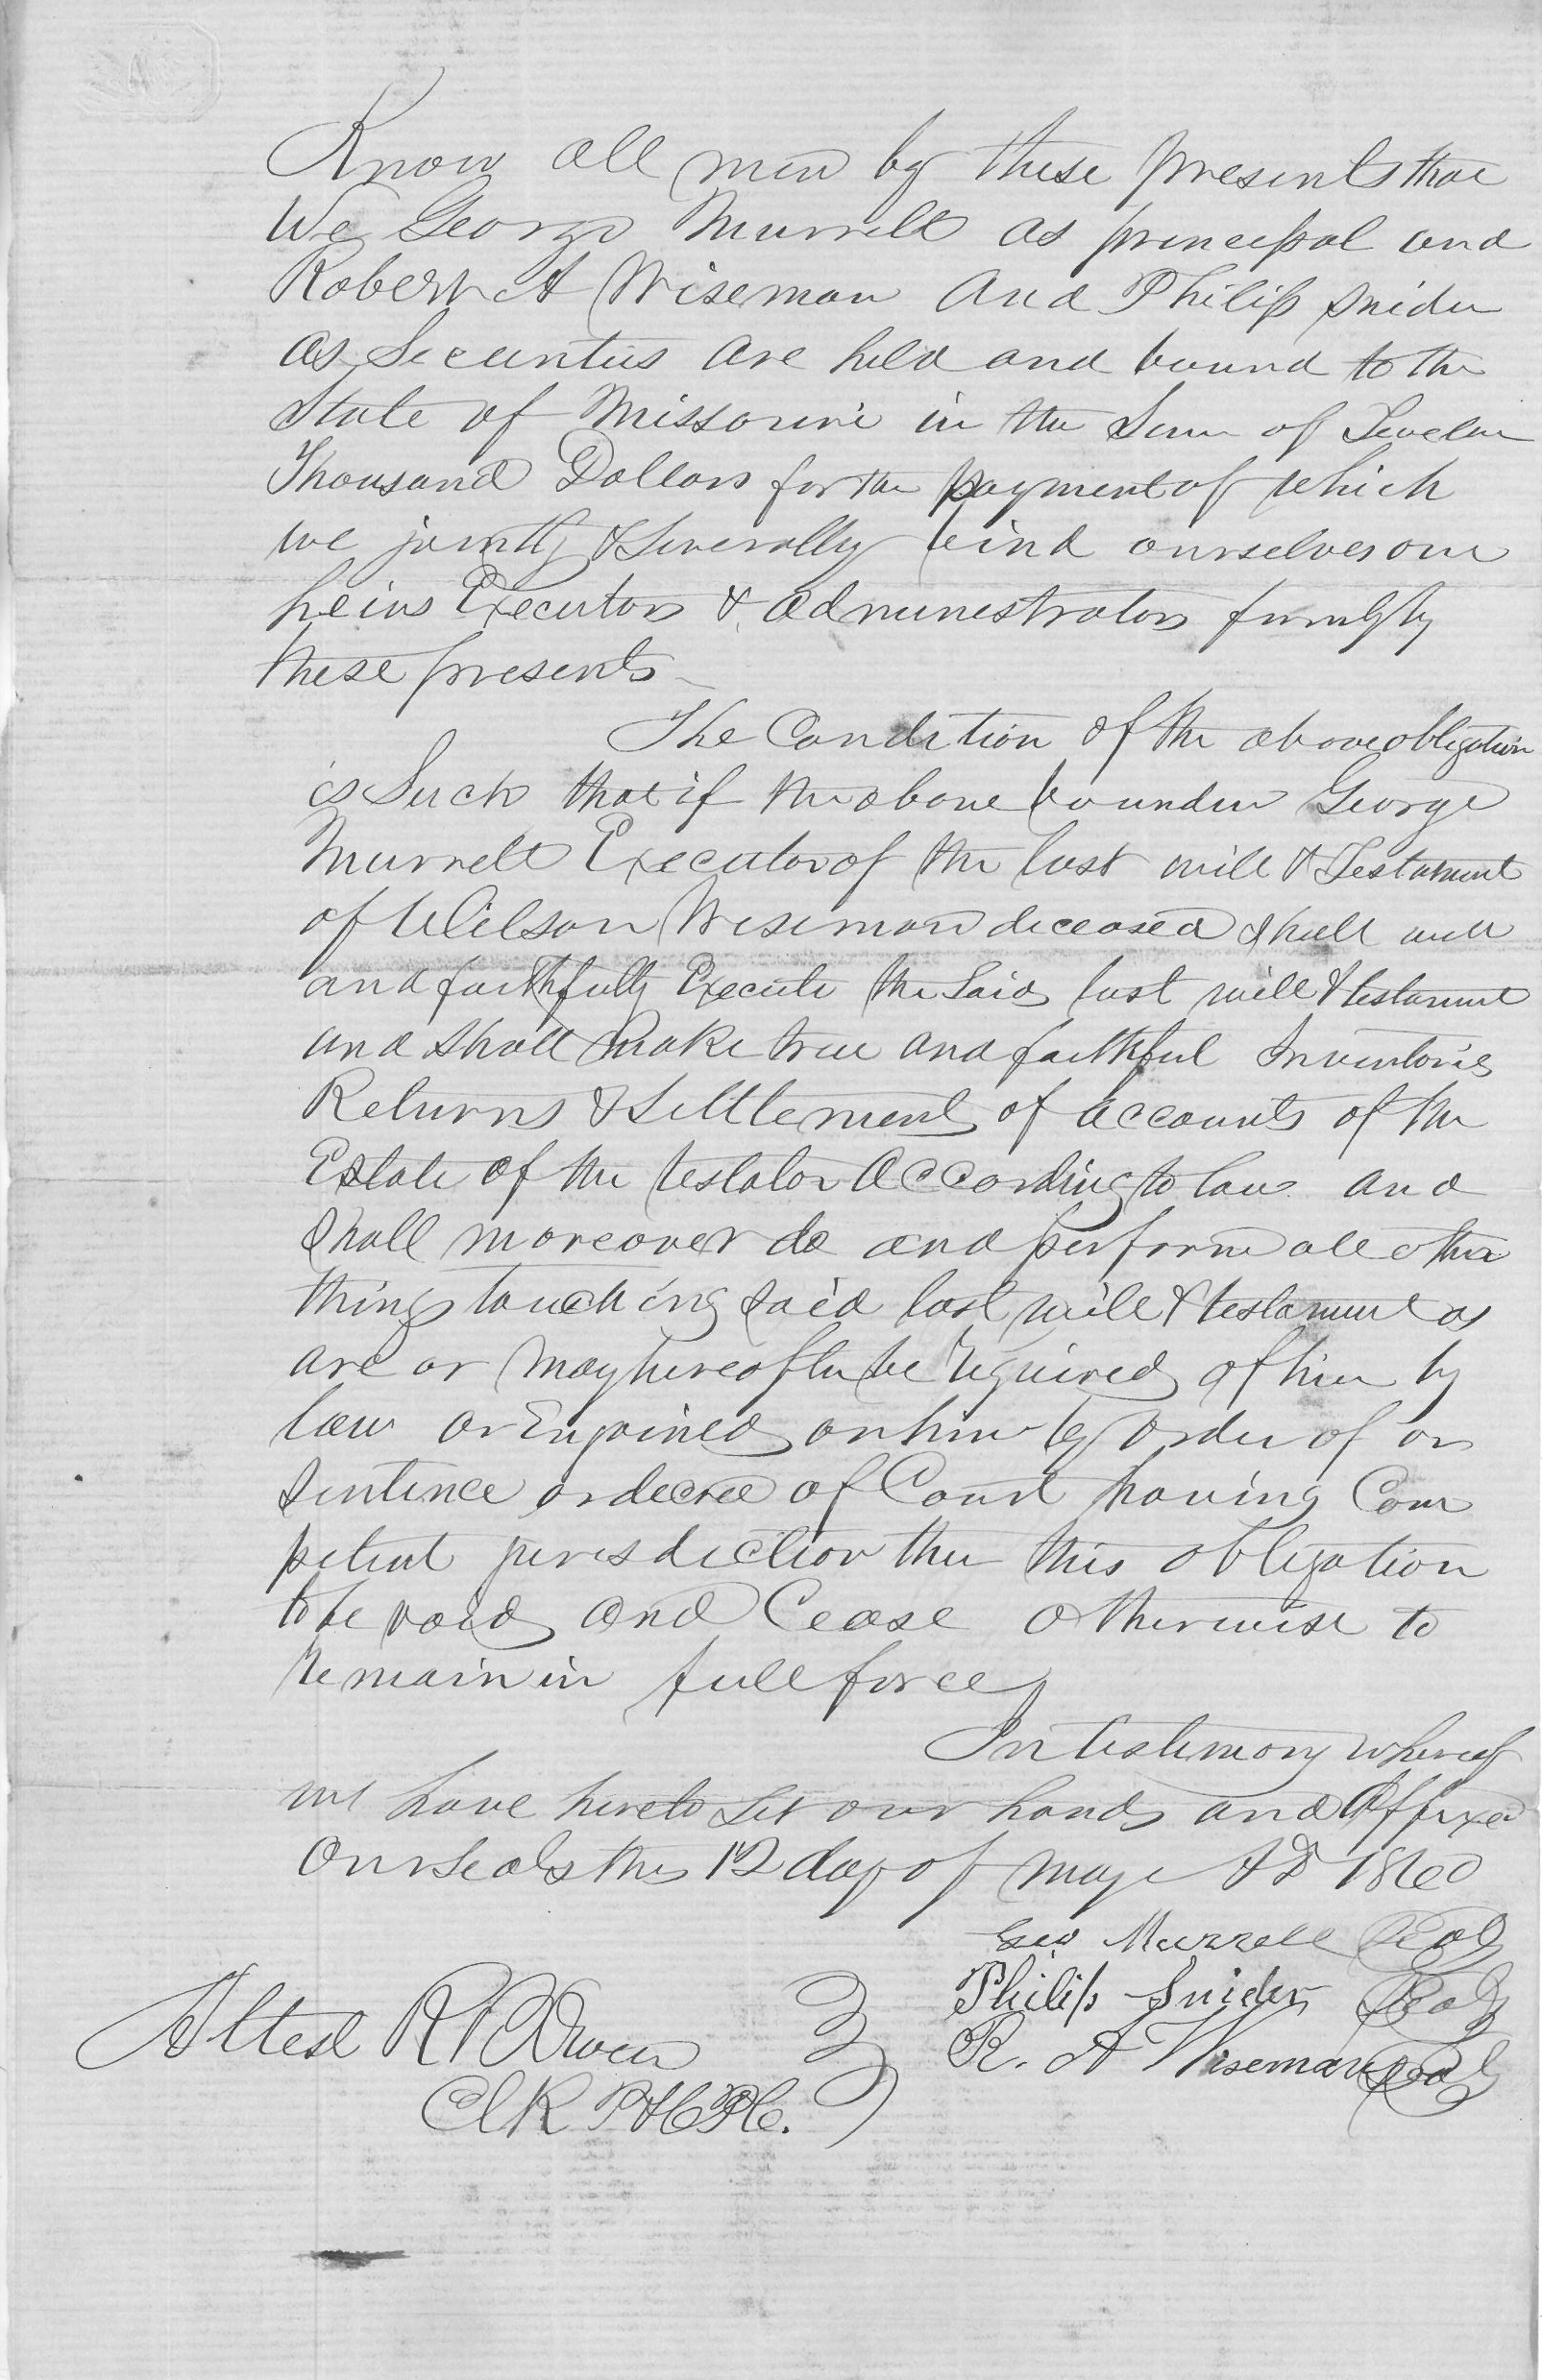 Know all men by these presents that
We George Murrell as principal and
Robert A Wiseman and Philip Snider
as Securities are held and bound to the
State of Missouri in the Sum of Twelve
Thousand Dollars for the payment of which
we jointly & Severally bind ourselves our
heirs Executors & administrators firmly by
these presents
The Condition of the above obligation
is Such that if the above bounden George
Murrell Executor of the last will & Testament
of Wilson Wiseman deceased shall well
and faithfully Execute the Said last will & testament
and shall make true and faithful Inventories
Returns & Settlements of accounts of the
Estate of the testator according to law and
shall moreover do and perform all other
things touching said last will & testament as
are or may hereafter be required of him by
law or Enjoined on him by order of or
sentence or decree of Court having Com
petent jurisdiction then this obligation
to be void and Cease otherwise to
remain in full force
In testimony whereof
we have hereto set our hands and affixed
our seals this 12 day of may AD 1860
Geo Murrell Seal
Philip Snider Seal
Attest R A Wiseman Seal
Clk